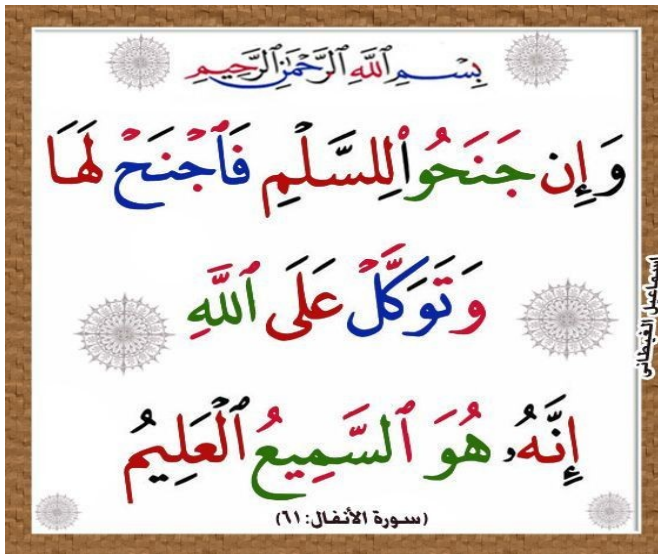 بِسْمِ ٱللَّهِ ٱلرَّحْمَٰنِ ٱلرَّحِيمِ
وَإِن جَنَحُوا۟ لِلسَّلْمِ فَٱجْنَحْ لَهَا
وَتَوَكَّلْ عَلَى ٱللَّهِ
إِنَّهُۥ هُوَ ٱلسَّمِيعُ ٱلْعَلِيمُ
(سورة الأنفال: ٦١)
إسماعيل الغبطاني